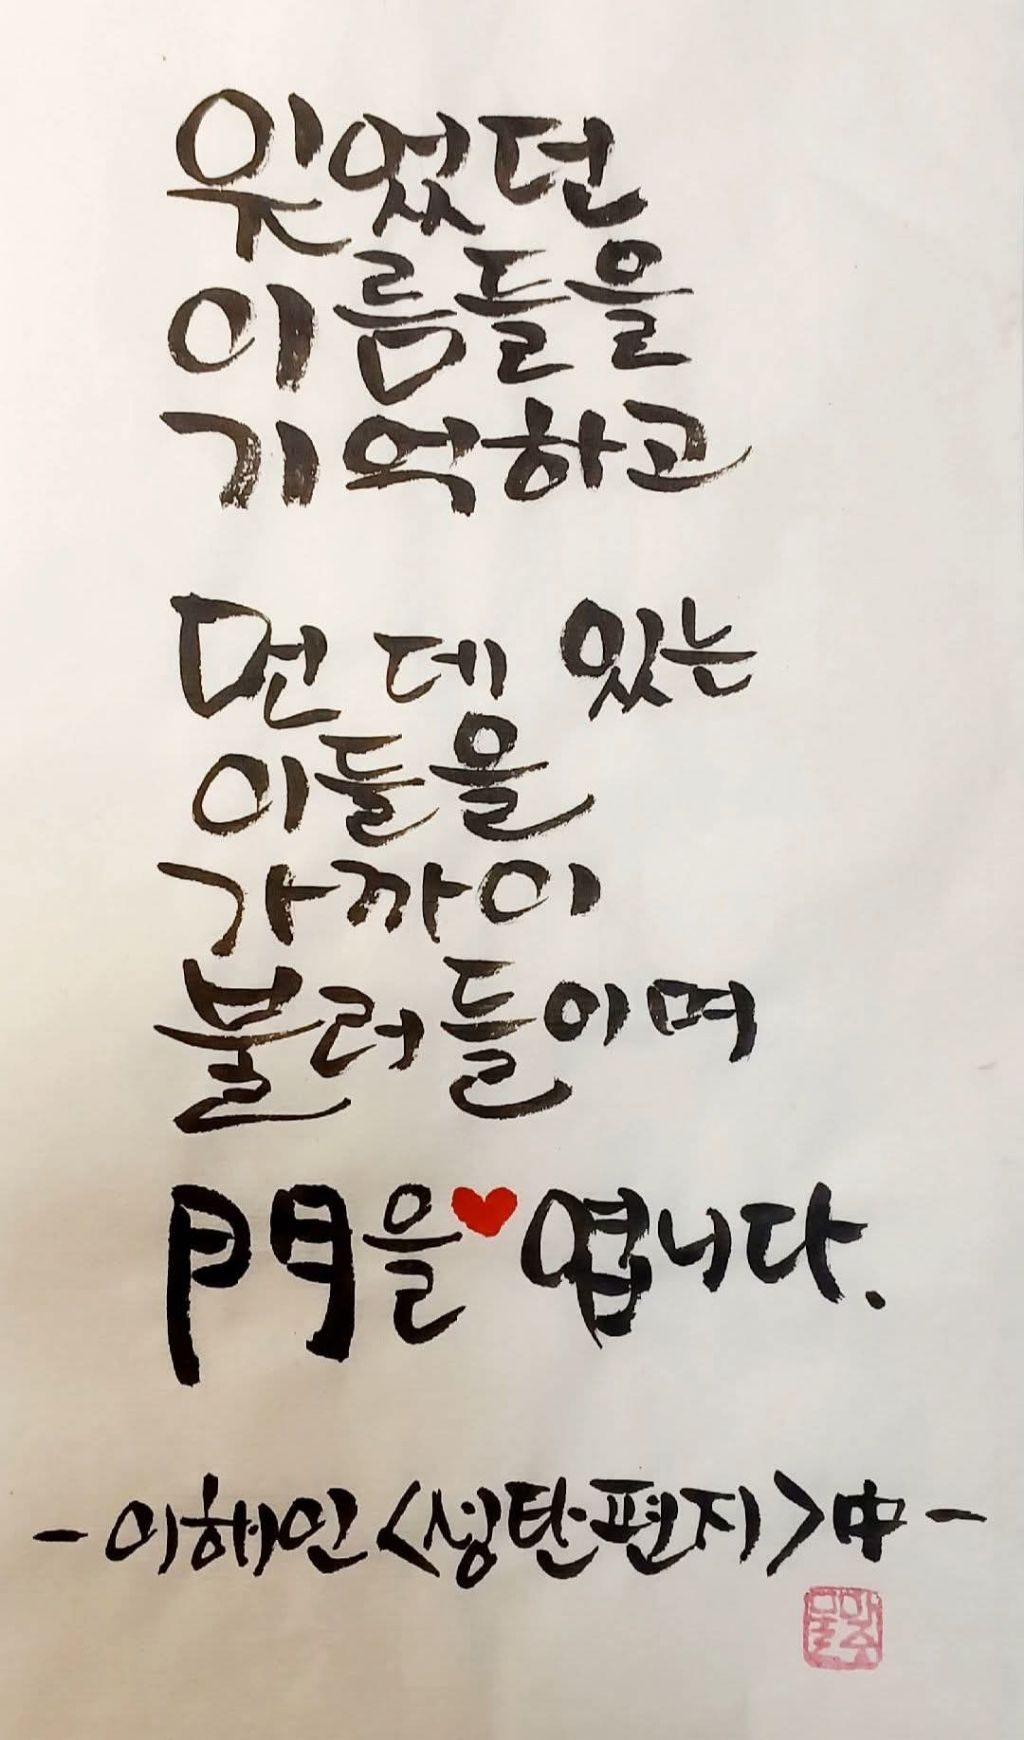 잊었던
이름들을
기억하고
먼 데 있는
이들을
가까이
불러들이며
門을 엽니다.
- 이해인 <성탄편지> 中 -